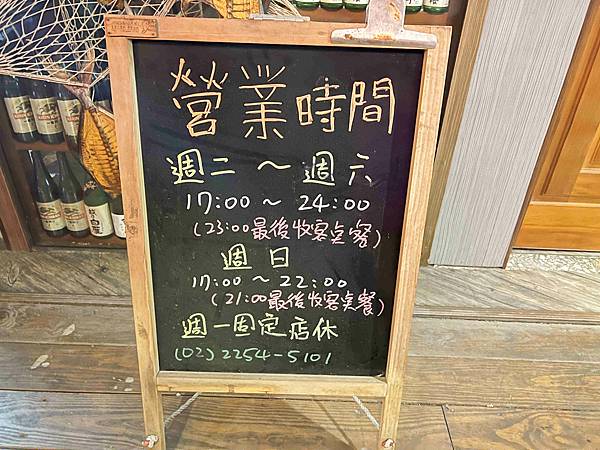 營業時間
週二～週六
17:00～24:00
(23:00最後收客點餐)
週日
17:00～22:00
(21:00最後收客點餐)
週一固定店休
(02)2254-5101